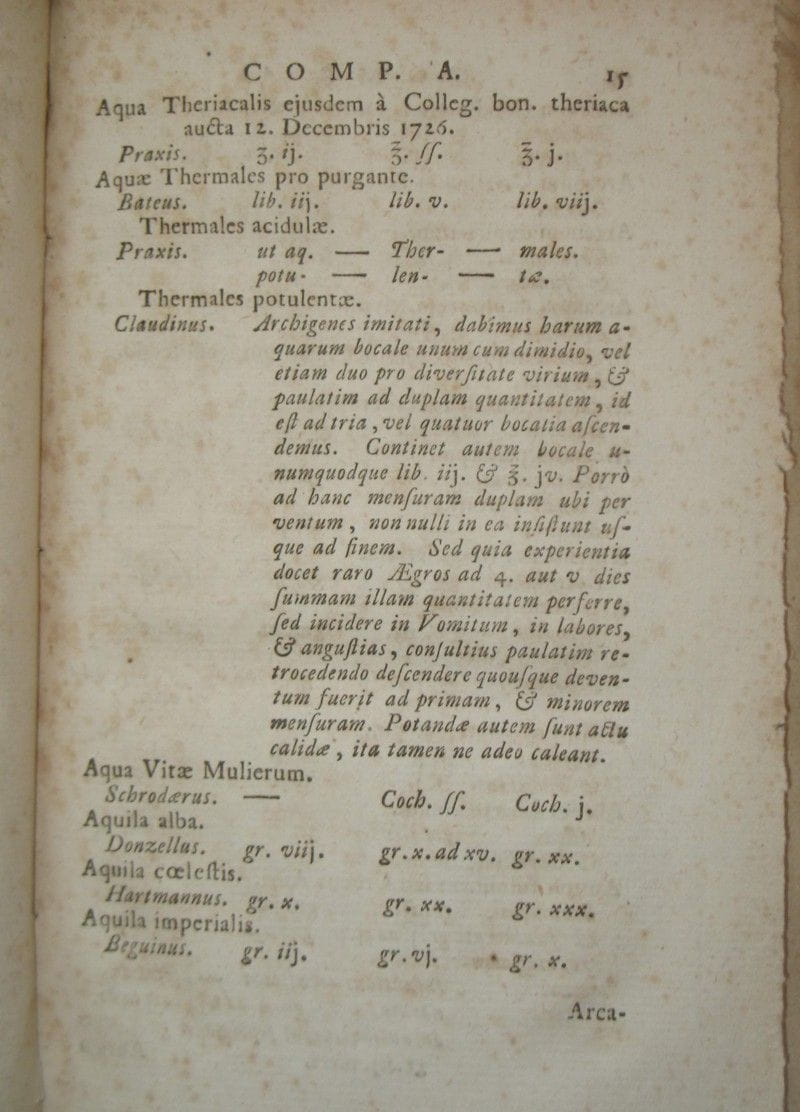 COMP. A. 15
Aqua Theriacalis ejusdem à Colleg. bon. theriaca
aucta 12. Decembris 1726.
Praxis. ʒ. ij. ℥. ſſ. ℥. j.
Aquæ Thermales pro purgante.
Bateus. lib. iij. lib. v. lib. viij.
Thermales acidulæ.
Praxis. ut aq. — Ther- — males.
potu- — len- — tæ.
Thermales potulentæ.
Claudinus. Archigenes imitati, dabimus harum a-
quarum bocale unum cum dimidio, vel
etiam duo pro diverſitate virium, &
paulatim ad duplam quantitatem, id
eſt ad tria, vel quatuor bocalia aſcen-
demus. Continet autem bocale u-
numquodque lib. iij. & ℥. jv. Porrò
ad hanc menſuram duplam ubi per
ventum, non nulli in ea inſiſtunt uſ-
que ad finem. Sed quia experientia
docet raro Ægros ad 4. aut v dies
ſummam illam quantitatem perferre,
ſed incidere in Vomitum, in labores,
& anguſtias, conſultius paulatim re-
trocedendo deſcendere quouſque deven-
tum fuerit ad primam, & minorem
menſuram. Potandæ autem ſunt actu
calidæ, ita tamen ne adeo caleant.
Aqua Vitæ Mulierum.
Schrodærus. — Coch. ſſ. Coch. j.
Aquila alba.
Donzellus. gr. viij. gr. x. ad xv. gr. xx.
Aquila cœleſtis.
Hartmannus. gr. x. gr. xx. gr. xxx.
Aquila imperialis.
Beguinus. gr. iij. gr. vj. gr. x.
Arca-